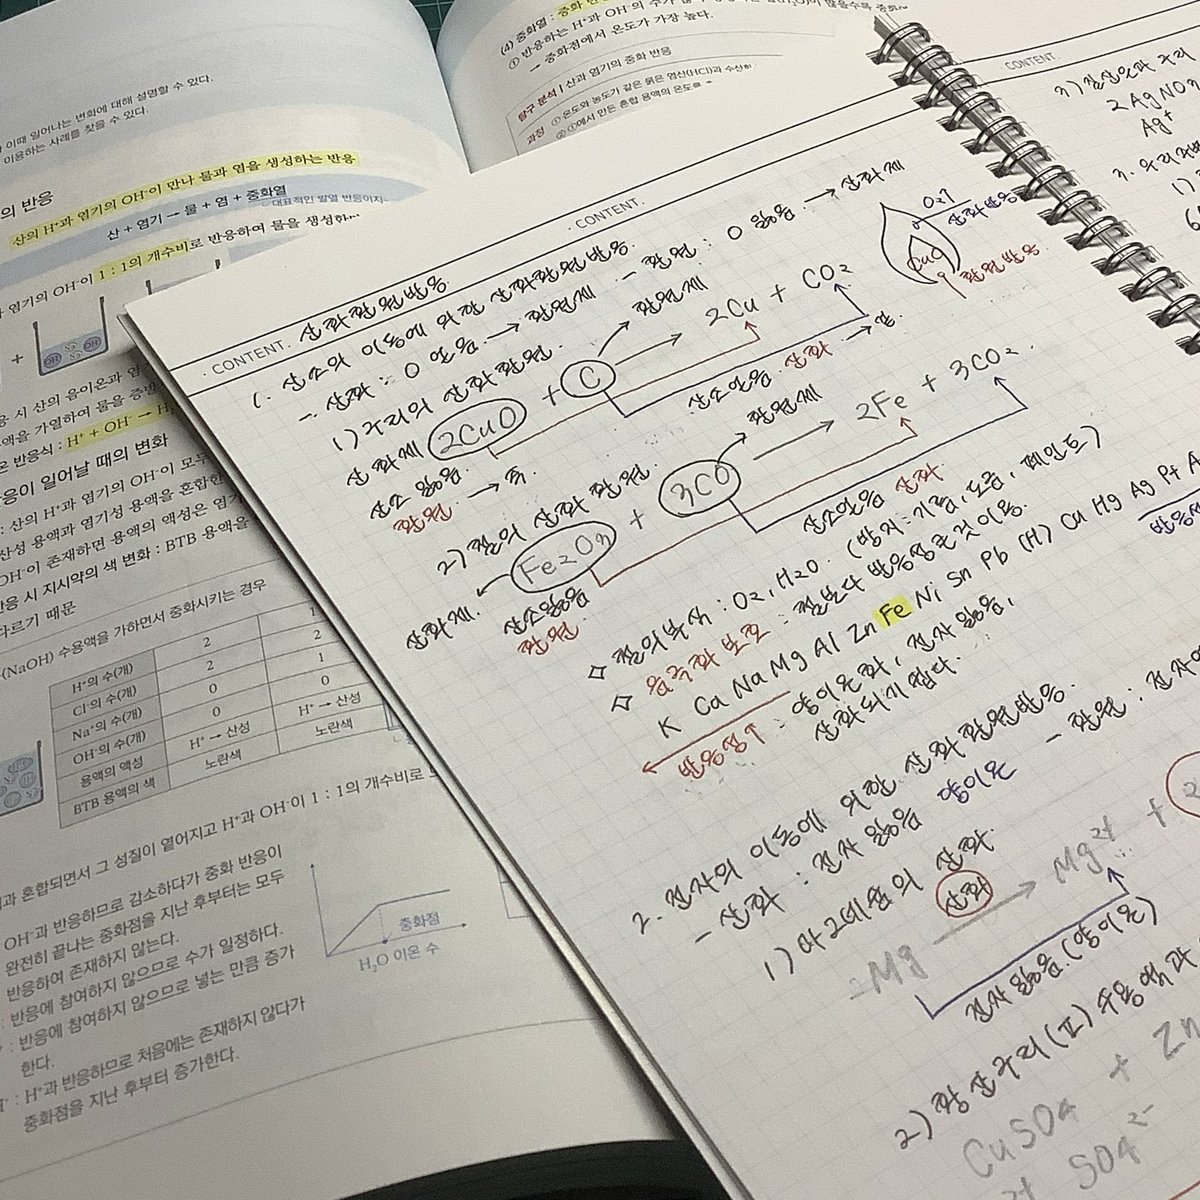 이때 일어나는 변화에 대해 설명할 수 있다.
이용하는 사례를 찾을 수 있다.
의 반응
산의 H⁺과 염기의 OH⁻이 만나 물과 염을 생성하는 반응
산 + 염기 → 물 + 염 + 중화열
대표적인 발열 반응이지
염기의 OH⁻이 1 : 1의 개수비로 반응하여 물을 생성하
+
OH⁻ Na⁺ OH⁻
시 산의 음이온과 염기
액을 가열하여 물을 증발
반응식 : H⁺ + OH⁻ → H₂
응이 일어날 때의 변화
: 산의 H⁺과 염기의 OH⁻이 모두
산성 용액과 염기성 용액을 혼합한
OH⁻이 존재하면 용액의 액성은 염기
반응 시 지시약의 색 변화 : BTB 용액을
다르기 때문
(NaOH) 수용액을 가하면서 중화시키는 경우
1
H⁺의 수(개) 2 2
Cl⁻의 수(개) 2 1
Na⁺의 수(개) 0 0
OH⁻의 수(개) 0 H⁺ → 산성
용액의 액성 H⁺ → 산성 노란색
BTB 용액의 색 노란색
혼합되면서 그 성질이 옅어지고 H⁺과 OH⁻이 1 : 1의 개수비로
OH⁻과 반응하므로 감소하다가 중화 반응이
완전히 끝나는 중화점을 지난 후부터는 모두
반응하여 존재하지 않는다.
: 반응에 참여하지 않으므로 수가 일정하다.
: 반응에 참여하지 않으므로 넣는 만큼 증가
한다.
: H⁺과 반응하므로 처음에는 존재하지 않다가
중화점을 지난 후부터 증가한다.
중화점
H₂O 이온 수
(4) 중화열 : 중화 반
① 반응하는 H⁺과 OH⁻의 수가
→ 중화점에서 온도가 가장 높다.
탐구 분석 | 산과 염기의 중화 반응
과정 ① 온도와 농도가 같은 묽은 염산(HCl)과 수산화
② ①에서 만든 혼합 용액의 온도를
· CONTENT. 산화환원반응.
· CONTENT.
1. 산소의 이동에 의한 산화환원반응.
- 산화 : O 얻음. → 환원제 - 환원 : O 잃음 → 산화제
1) 구리의 산화환원.
환원제
산화제 2CuO + C → 2Cu + CO₂
산소 잃음.
환원
산소얻음. 산화
O₂?
산화반응
CuO
환원 반응
2) 철의 산화 환원.
환원제
Fe₂O₃ + 3CO → 2Fe + 3CO₂
산화제.
산소잃음
환원.
산소얻음 산화
◇ 철의 부식 : O₂, H₂O. (방지 : 기름, 도금, 페인트)
◇ 음극화 보호 : 철보다 반응성 큰 것 이용.
K Ca Na Mg Al Zn Fe Ni Sn Pb (H) Cu Hg Ag Pt A
반응성↑ : 양이온화, 전자 잃음,
산화되기 쉽다.
반응성
2. 전자의 이동에 의한 산화환원반응.
- 산화 : 전자 잃음 양이온 - 환원 : 전자
1) 마그네슘의 산화.
산화
Mg → Mg²⁺ + 2
전자 잃음. (양이온)
2) 황산구리(Ⅱ) 수용액과
CuSO₄ + Zn
SO₄²⁻
CONTENT.
2AgNO₃
Ag⁺
1)